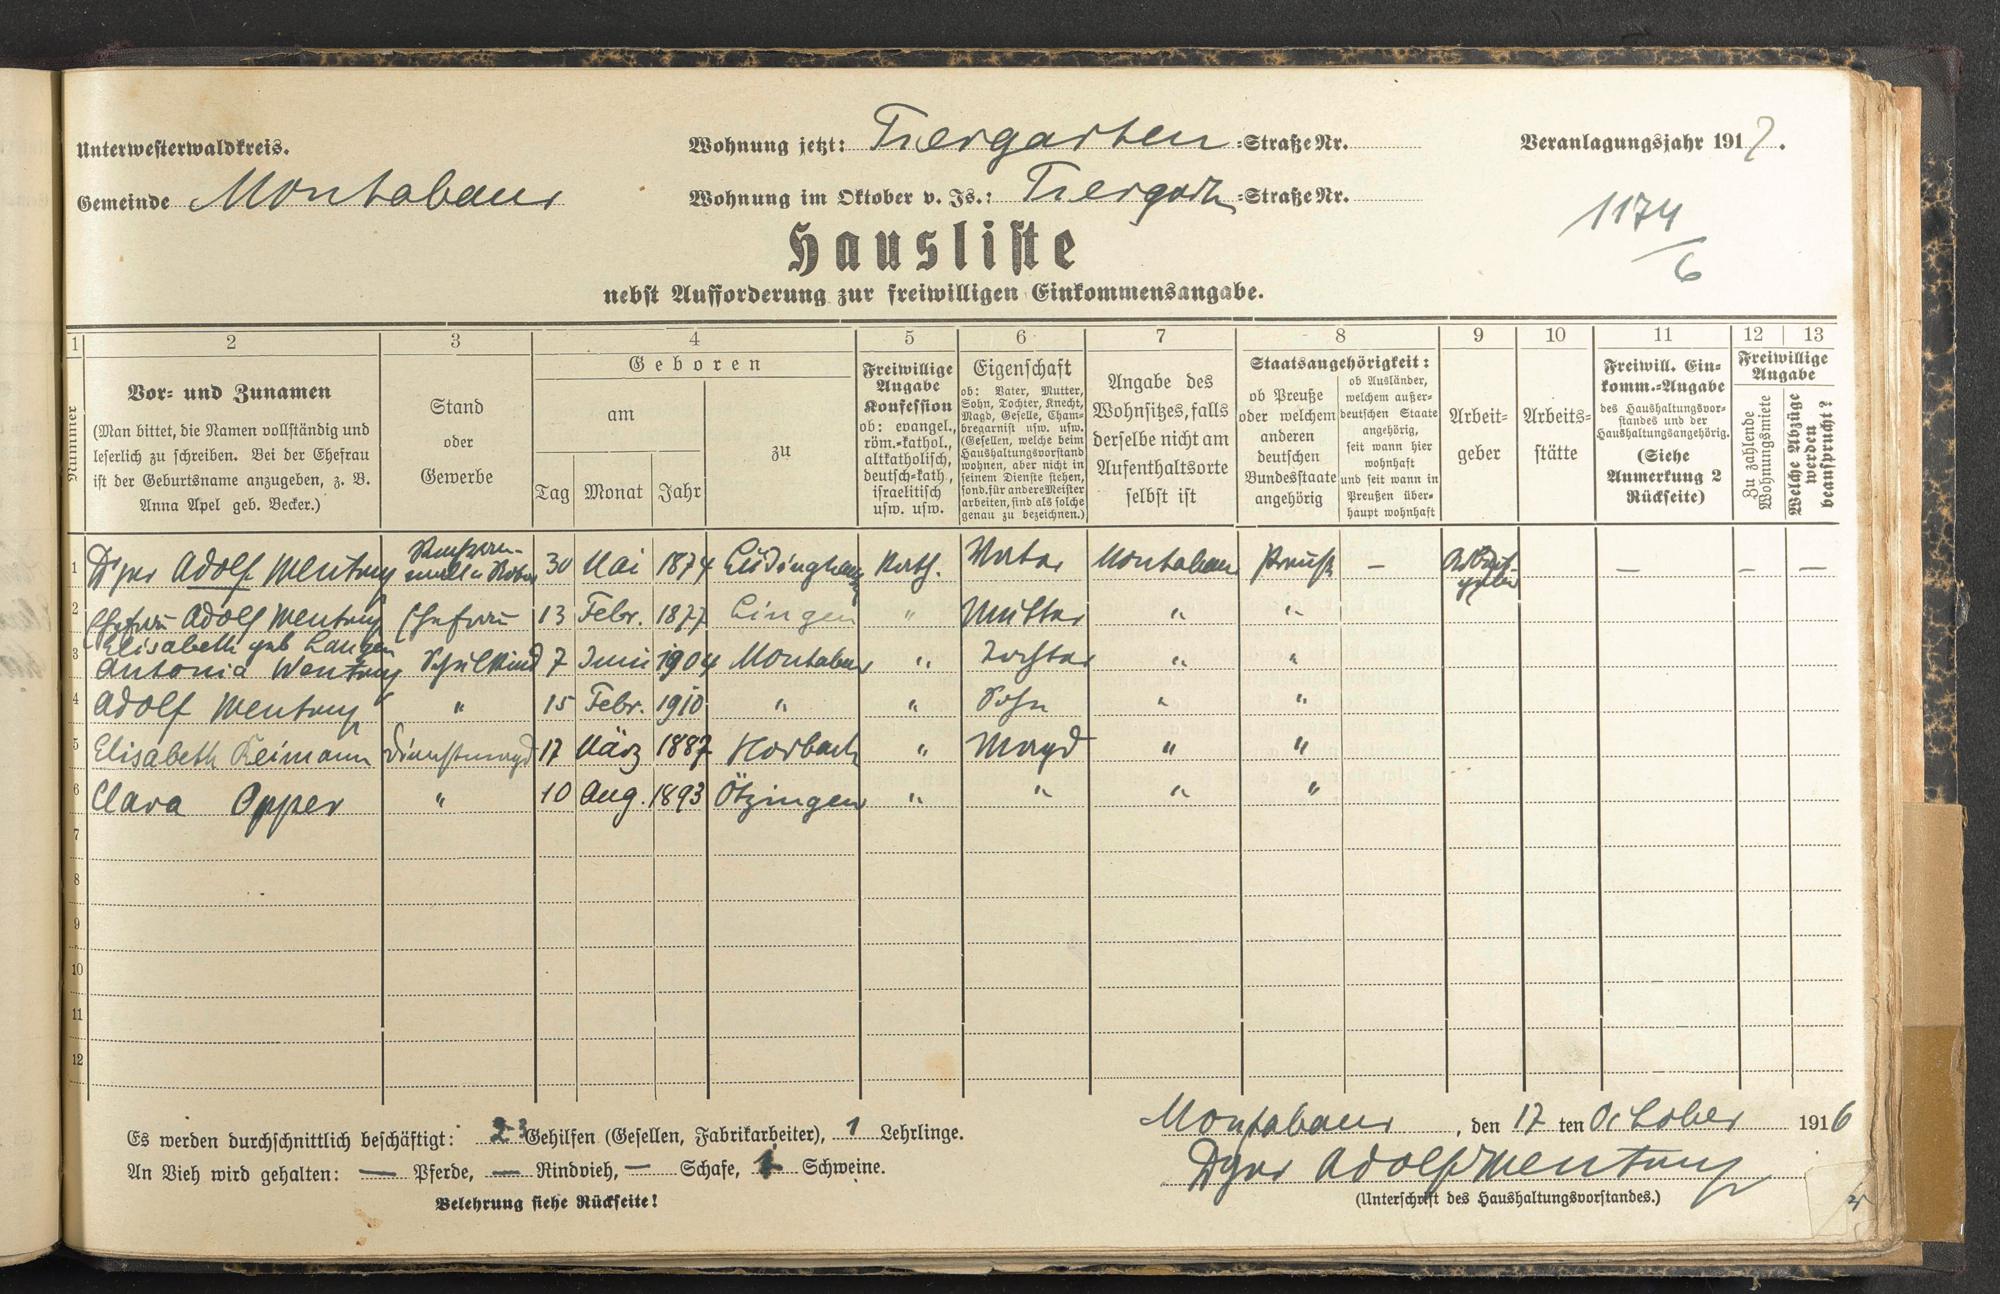 Unterwesterwaldkreis.
Wohnung jetzt: Tiergarten -Straße Nr.
Veranlagungsjahr 1917.
Gemeinde Montabaur
Wohnung im Oktober v. Js.: Tiergart -Straße Nr.
1174
6
Hausliste
nebst Aufforderung zur freiwilligen Einkommensangabe.
1 2 3 4 5 6 7 8 9 10 11 12 13
Nummer
Vor- und Zunamen
(Man bittet, die Namen vollständig und
leserlich zu schreiben. Bei der Ehefrau
ist der Geburtsname anzugeben, z. B.
Anna Apel geb. Becker.)
Stand
oder
Gewerbe
Geboren
am
Tag Monat Jahr
zu
Freiwillige
Angabe
Konfession
ob: evangel.,
röm.-kathol.,
altkatholisch,
deutsch-kath.,
israelitisch
usw. usw.
Eigenschaft
ob: Vater, Mutter,
Sohn, Tochter, Knecht,
Magd, Geselle, Cham-
bregarnist usw. usw.
(Gesellen, welche beim
Haushaltungsvorstand
wohnen, aber nicht in
seinem Dienste stehen,
sond. für andere Meister
arbeiten, sind als solche
genau zu bezeichnen.)
Angabe des
Wohnsitzes, falls
derselbe nicht am
Aufenthaltsorte
selbst ist
Staatsangehörigkeit:
ob Preuße
oder welchem
anderen
deutschen
Bundesstaate
angehörig
ob Ausländer,
welchem außer-
deutschen Staate
angehörig,
seit wann hier
wohnhaft
und seit wann in
Preußen über-
haupt wohnhaft
Arbeit-
geber
Arbeits-
stätte
Freiwill. Ein-
komm.-Angabe
des Haushaltungsvor-
standes und der
Haushaltungsangehörig.
(Siehe
Anmerkung 2
Rückseite)
Freiwillige
Angabe
Zu zahlende
Wohnungsmiete
Welche Abzüge
werden
beansprucht?
1 Adolf 30 Mai 1874 Lüdinghausen Kath. Vater Montabaur Preuße — Arbeit- — — —
geber
2 Ehefrau Adolf Ehefrau 13 Febr. 1877 Lingen " Mutter " "
Elisabeth geb Langen
3 Antonia Schulkind 7 Juni 1904 Montabaur " Tochter " "
4 Adolf " 15 Febr. 1910 " " Sohn " "
5 Elisabeth Reimann Dienstmagd 17 März 1887 Horbach " Magd " "
6 Clara Opper " 10 Aug. 1893 Ötzingen " " " "
7
8
9
10
11
12
Es werden durchschnittlich beschäftigt: Gehilfen (Gesellen, Fabrikarbeiter), 1 Lehrlinge.
Montabaur, den 17 ten October 1916
An Vieh wird gehalten: — Pferde, — Rindvieh, — Schafe, 1 Schweine.
Adolf
Belehrung siehe Rückseite!
(Unterschrift des Haushaltungsvorstandes.)